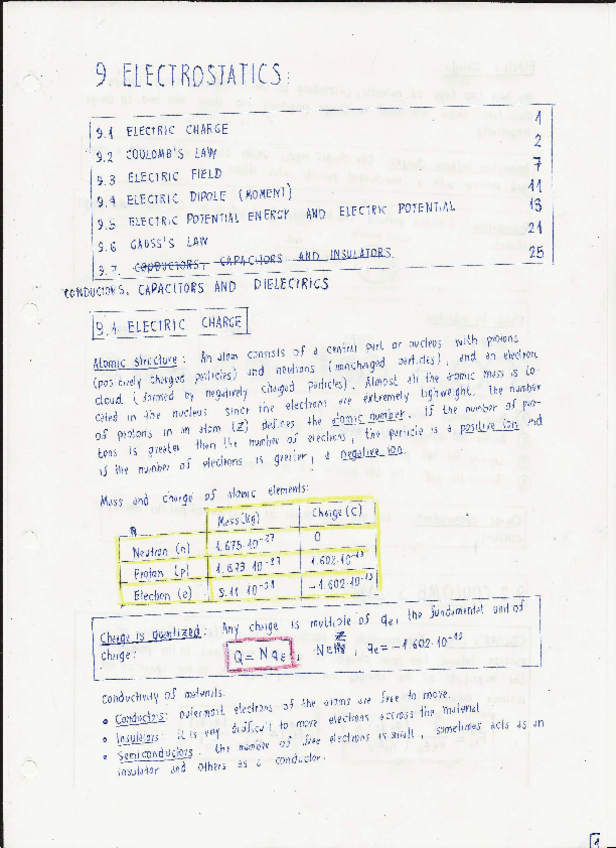 9. ELECTROSTATICS:
9.1 ELECTRIC CHARGE 1
9.2 COULOMB'S LAW 2
9.3 ELECTRIC FIELD 7
9.4 ELECTRIC DIPOLE (MOMENT) 11
9.5 ELECTRIC POTENTIAL ENERGY AND ELECTRIC POTENTIAL 13
9.6 GAUSS'S LAW 21
9.7. CONDUCTORS, CAPACITORS AND INSULATORS 25
CONDUCTORS, CAPACITORS AND DIELECTRICS
9.1 ELECTRIC CHARGE
Atomic structure: An atom consists of a central part or nucleus with protons
(positively charged particles) and neutrons (noncharged particles), and an electron
cloud (formed by negatively charged particles). Almost all the atomic mass is lo-
cated in the nucleus since the electrons are extremely lightweight. The number
of protons in an atom (Z) defines the atomic number. If the number of pro-
tons is greater than the number of electrons, the particle is a positive ion and
if the number of electrons is greater, a negative ion.
Mass and charge of atomic elements:
Mass (kg) Charge (C)
Neutron (n) 1.675·10⁻²⁷ 0
Proton (p) 1.673·10⁻²⁷ 1.602·10⁻¹⁹
Electron (e) 9.11·10⁻³¹ -1.602·10⁻¹⁹
Charge is quantized: Any charge is multiple of qe, the fundamental unit of
charge: Q = N qe, N∈ Z, qe = -1.602·10⁻¹⁹
Conductivity of materials.
• Conductors: outermost electrons of the atoms are free to move.
• Insulators: it is very difficult to move electrons accross the material
• Semiconductors: the number of free electrons is small, sometimes acts as an
insulator and others as a conductor.
1